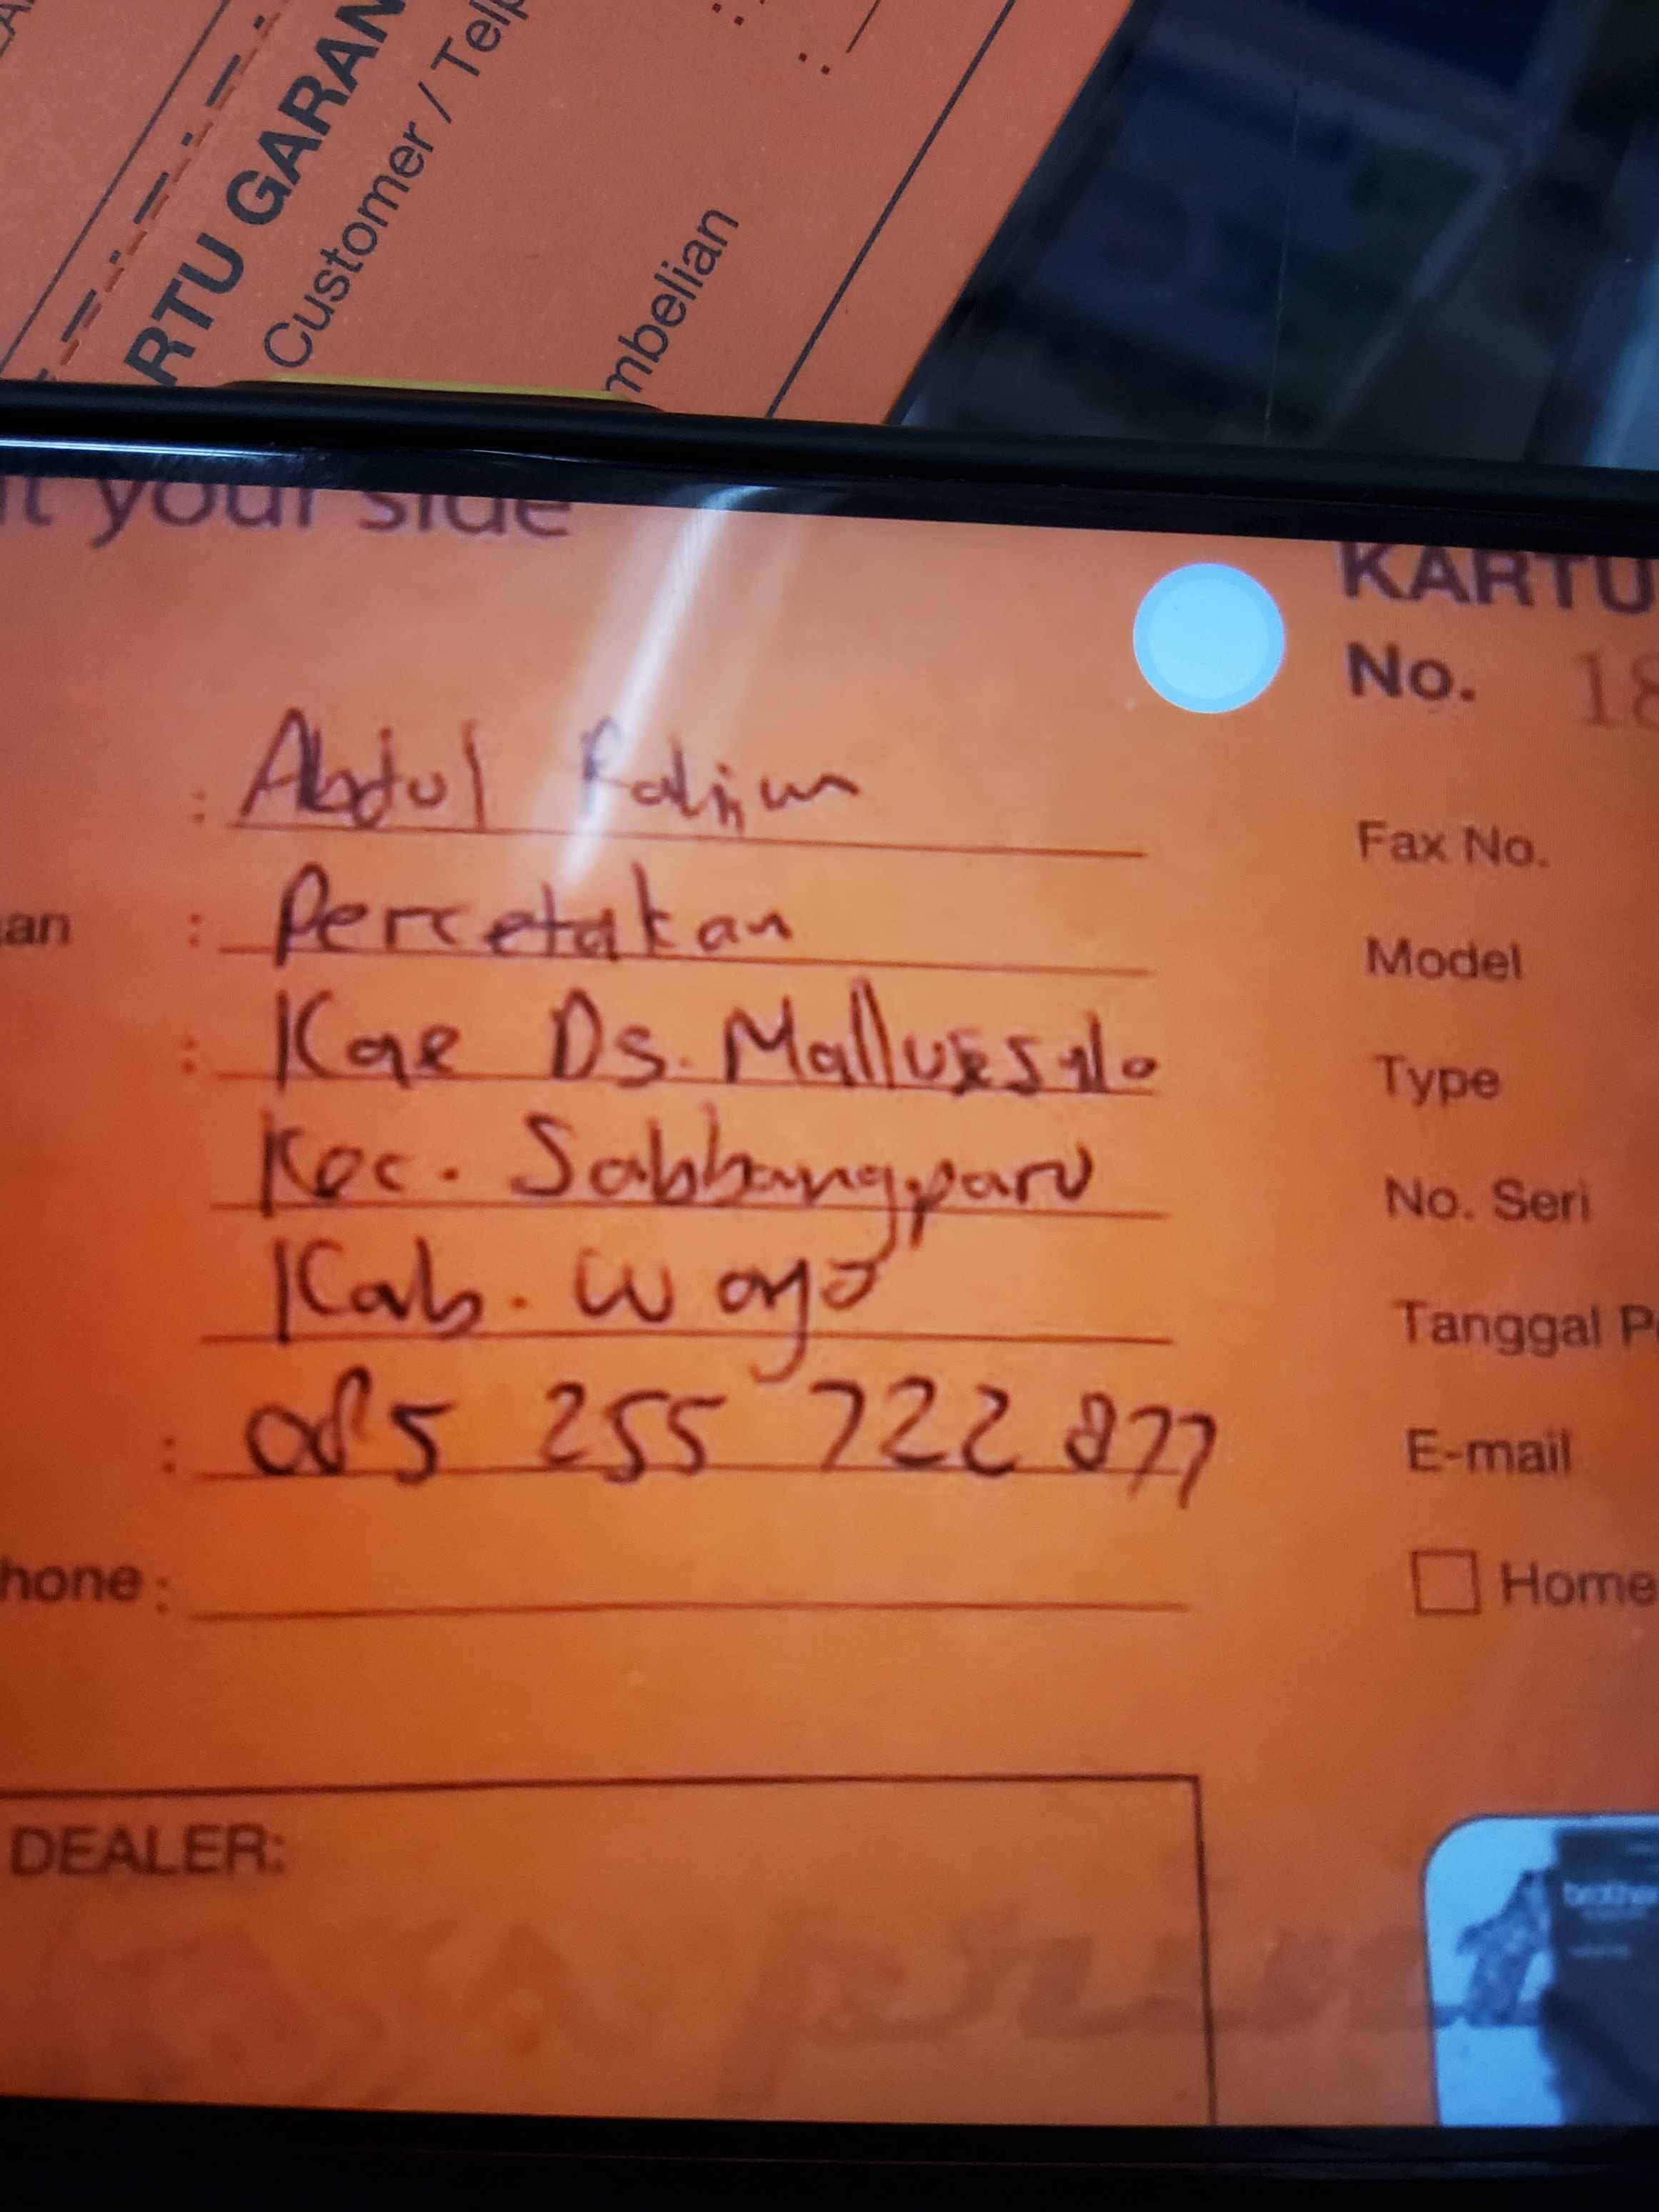 RTU GARAN
Customer / Telp
mbelian
it your side
KARTU
No. 18
: Abdul Rahim
an : Percetakan
: Kae Ds. Mallusesalo
Kec. Sabbangparu
Kab. Wajo
: 085 255 722 877
hone :
Fax No.
Model
Type
No. Seri
Tanggal P
E-mail
Home
DEALER:
brother